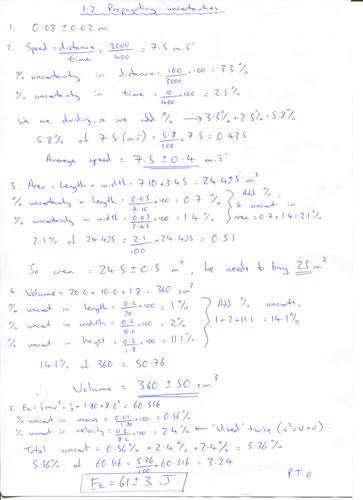 1.2 Propagating uncertainties
1. 0.08 ± 0.02 m
2. Speed = distance/time = 3000/400 = 7.5 m.s⁻¹
% uncertainty in distance = 100/3000 × 100 = 3.3%
% uncertainty in time = 10/400 × 100 = 2.5%
We are dividing, so we add % → 3.3% + 2.5% = 5.8%
5.8% of 7.5 (m.s⁻¹) = 5.8/100 × 7.5 = 0.435
Average speed = 7.5 ± 0.4 m.s⁻¹
3. Area = Length × width = 7.10 × 3.45 = 24.495 m²
% uncertainty in length = 0.05/7.10 × 100 = 0.7% } Add %,
% uncertainty in width = 0.05/3.45 × 100 = 1.4% } % uncert in area = 0.7 + 1.4 = 2.1%
2.1% of 24.495 = 2.1/100 × 24.495 = 0.51
So area = 24.5 ± 0.5 m², he needs to buy 25 m²
4. Volume = 20.0 × 10.0 × 1.8 = 360 cm³
% uncert in length = 0.2/20 × 100 = 1% } Add % uncerts,
% uncert in width = 0.2/10.0 × 100 = 2% } 1 + 2 + 11.1 = 14.1%
% uncert in height = 0.2/1.8 × 100 = 11.1%
14.1% of 360 = 50.76
∴ Volume = 360 ± 50 cm³
5. Eₖ = ½mv² = ½ × 1.80 × 8.2² = 60.516
% uncert in mass = 0.01/1.80 × 100 = 0.56%
% uncert in velocity = 0.2/8.2 × 100 = 2.4% ← "Used" twice (v² = v × v)
Total uncert = 0.56% + 2.4% + 2.4% = 5.36%
5.36% of 60.516 = 5.36/100 × 60.516 = 3.24
Eₖ = 61 ± 3 J
P.T.O